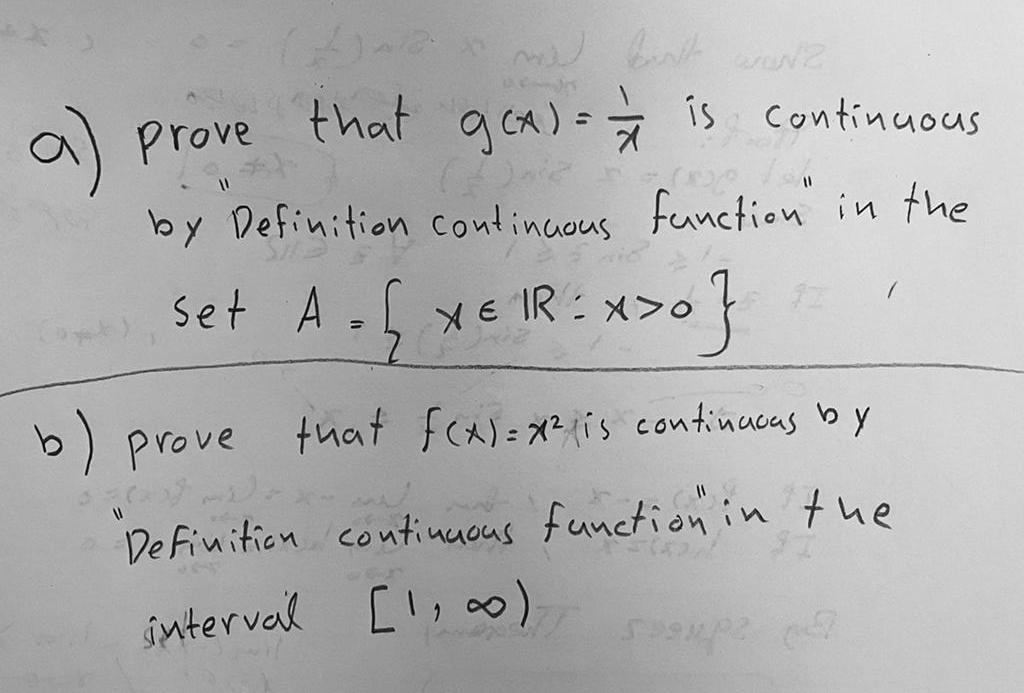 a) prove that g(x) = 1/x is continuous
by "Definition continuous function" in the
set A = { x ∈ ℝ : x > 0 }
b) prove that f(x) = x² is continuous by
"Definition continuous function" in the
interval [1, ∞)